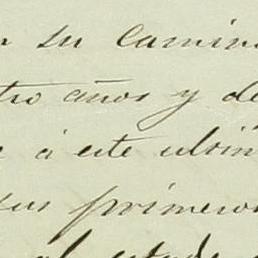 su camin
tro años y de
á este ultim
sus primero
al estado